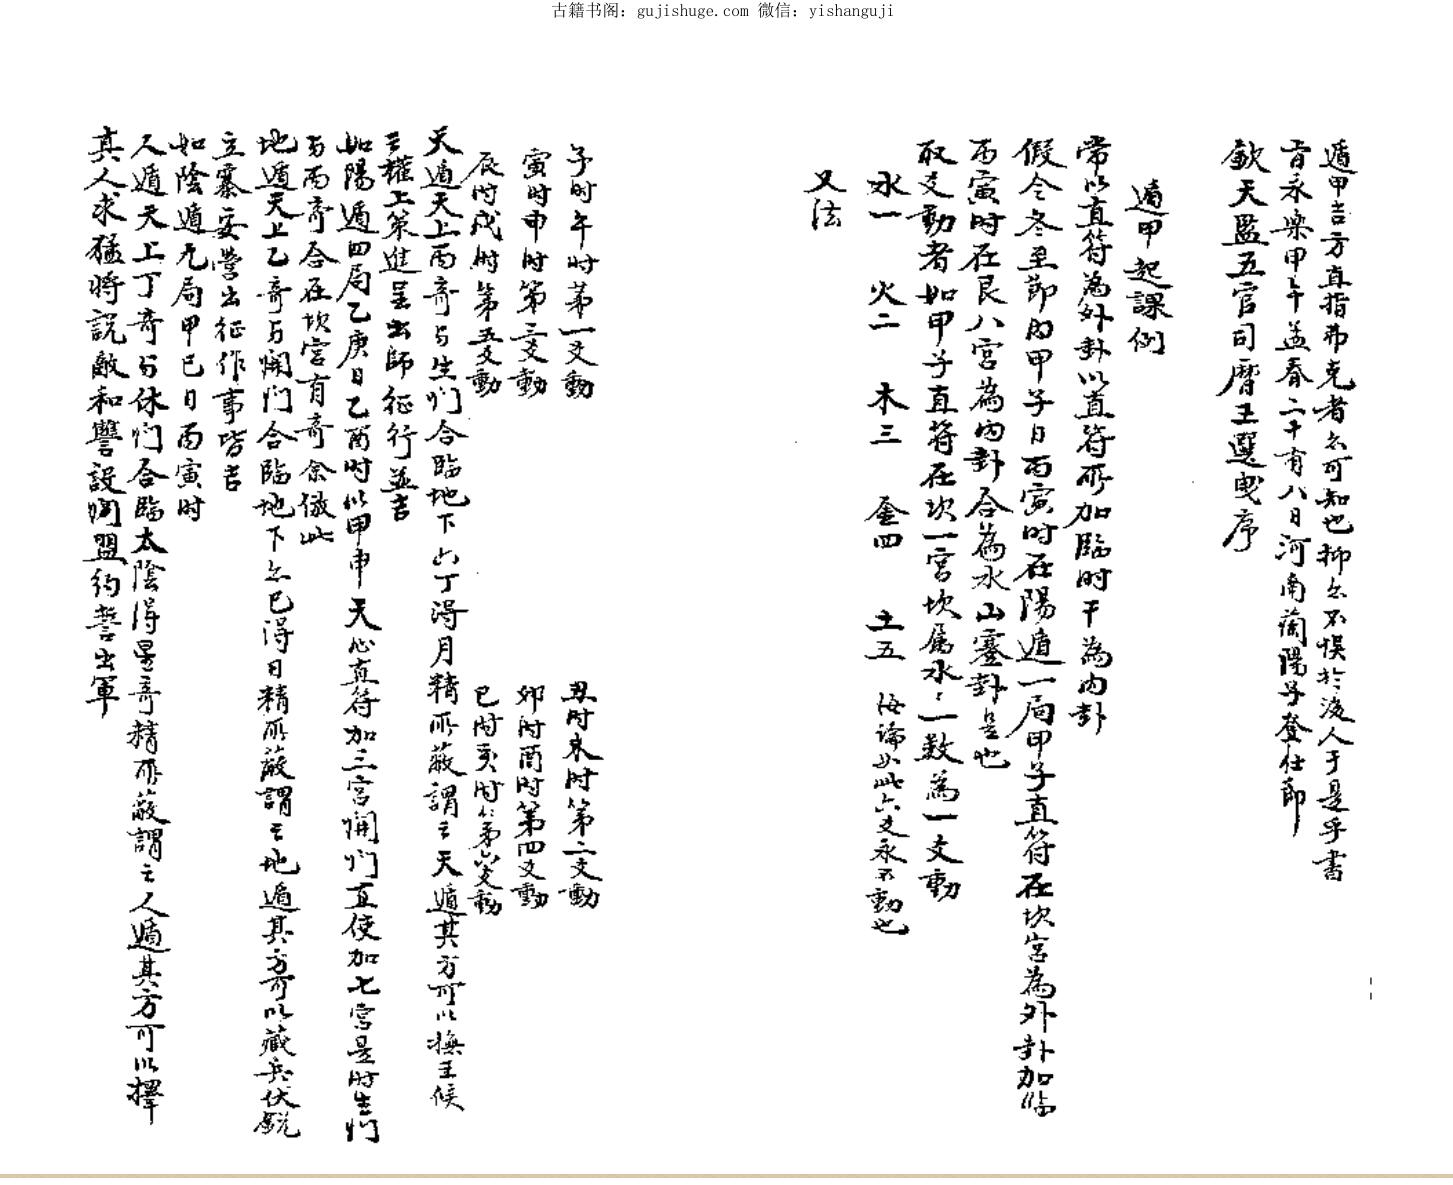 古籍书阁：gujishuge.com 微信：yishanguji
遁甲吉方直指弗克者亦可知也抑亦不悞於後人于是乎書
旹永樂甲午孟春二十有八日河南蘭陽子登仕郎
欽天監五官司曆王巽曳序
遁甲起課例
常以直符為外卦以直符所加臨時干為内卦
假令冬至節内甲子日丙寅时在陽遁一局甲子直符在坎宮為外卦加臨
丙寅时在艮八宮為内卦合為水山蹇卦是也
取爻動者如甲子直符在坎一宮坎属水〻一数為一爻動
水一 火二 木三 金四 土五 論如此六爻永不動也
又法
子时午时第一爻動 丑时未时第二爻動
寅时申时第三爻動 卯时酉时第四爻動
辰时戌时第五爻動 巳时亥时第六爻動
天遁天上丙奇与生门合臨地下六丁得月精所蔽謂之天遁其方可以 王候
之權上策進呈出師征行並吉
如陽遁四局乙庚日乙酉时以甲申天心直符加三宮開门直使加七宮是时生门
与丙奇合在坎宮有奇余倣此
地遁天上乙奇与開门合臨地下六己得日精所蔽謂之地遁其方可以藏兵伏銳
立寨安營出征作事皆吉
如陰遁九局甲己日丙寅时
人遁天上丁奇与休门合臨太陰得星奇精所蔽謂之人遁其方可以擇
真人求猛將説敵和讐設 盟約誓出軍